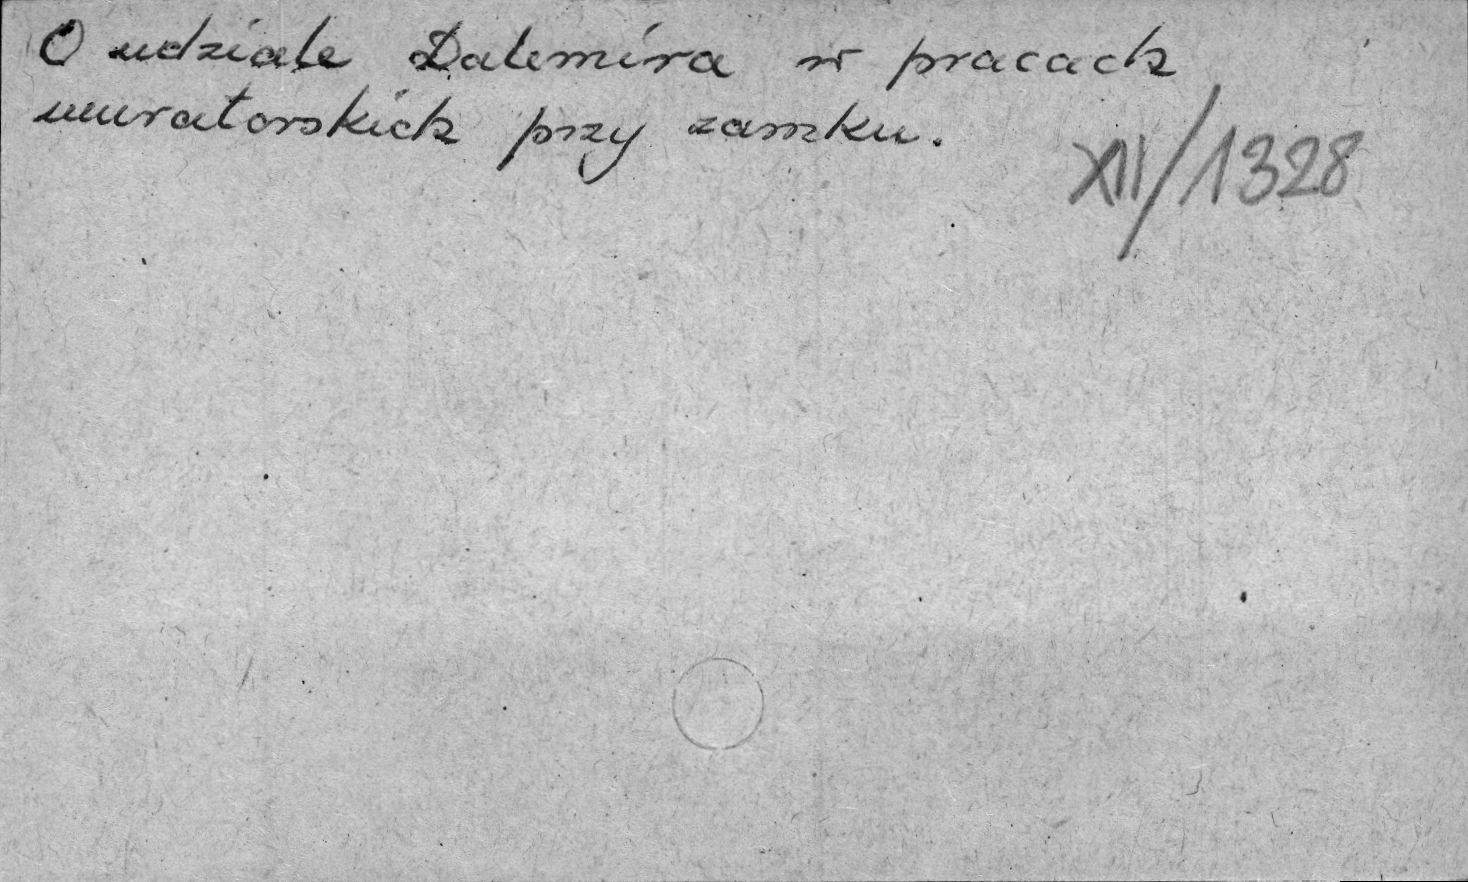 O udziale Dalemira w pracach
muratorskich przy zamku.
XII/1328